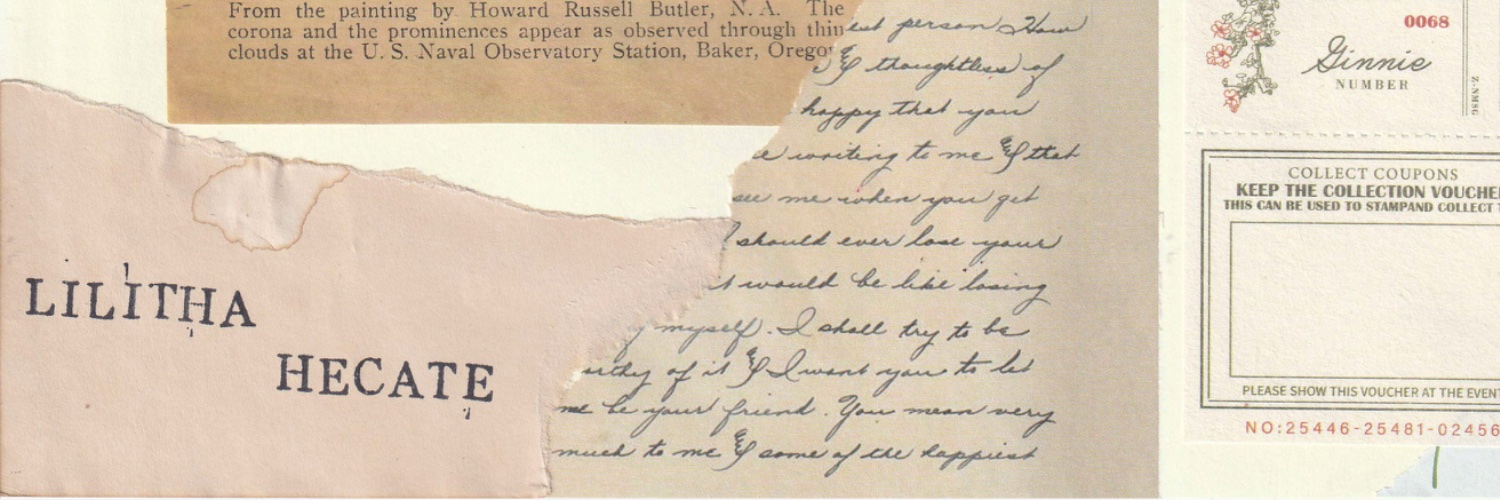 From the painting by Howard Russell Butler, N. A. The
corona and the prominences appear as observed through thin
clouds at the U. S. Naval Observatory Station, Baker, Orego
LILITHA
HECATE
person How
thoughtless of
happy that you
writing to me & that
see me when you get
should ever lose your
would be like losing
myself. I shall try to be
of it & I want you to let
me be your friend. You mean very
much to me & some of the happiest
0068
Ginnie
NUMBER
Z-NMSG
COLLECT COUPONS
KEEP THE COLLECTION VOUCHE
THIS CAN BE USED TO STAMPAND COLLECT
PLEASE SHOW THIS VOUCHER AT THE EVENT
NO:25446-25481-02456